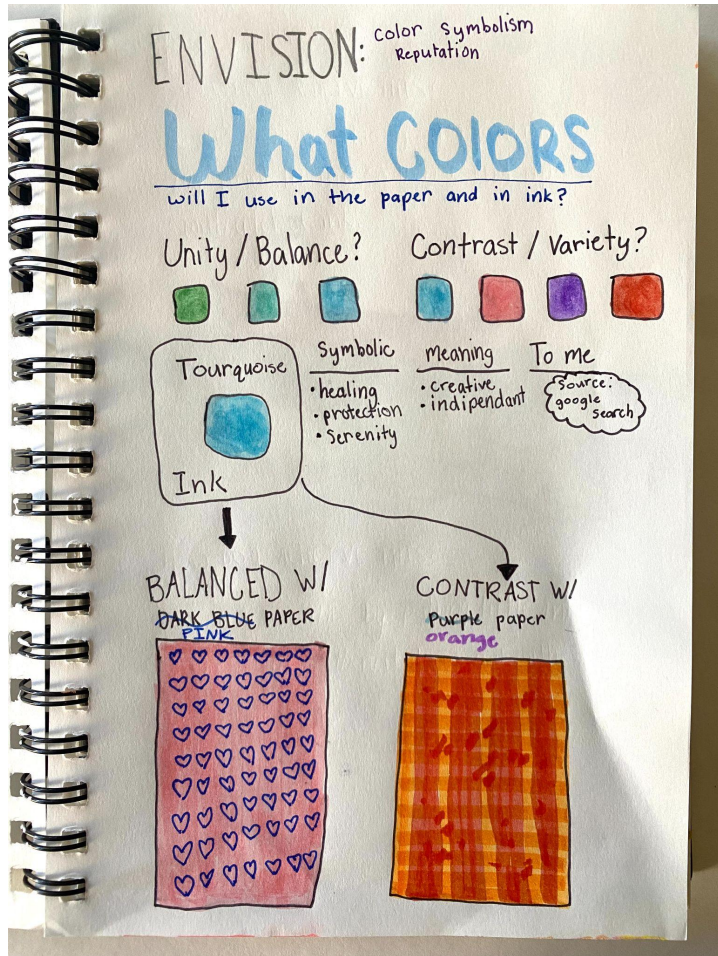 ENVISION: Color Symbolism
Reputation
What COLORS
will I use in the paper and in ink?
Unity / Balance?
Contrast / Variety?
Tourquoise
Ink
Symbolic
• healing
• protection
• Serenity
meaning
• creative
• indipendant
To me
Source:
google
search
BALANCED W/
DARK BLUE PAPER
PINK
CONTRAST W/
Purple paper
orange